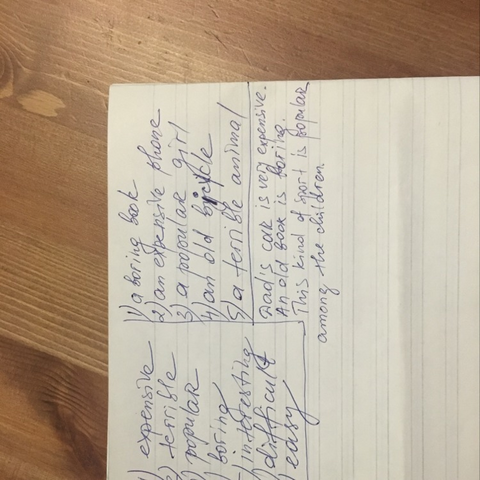 expensive
terrible
popular
boring
interesting
difficult
easy
1) a boring book
2) an expensive phone
3) a popular girl
4) an old bicycle
5) a terrible animal
Dad's car is very expensive.
An old book is boring.
This kind of sport is popular
among the children.